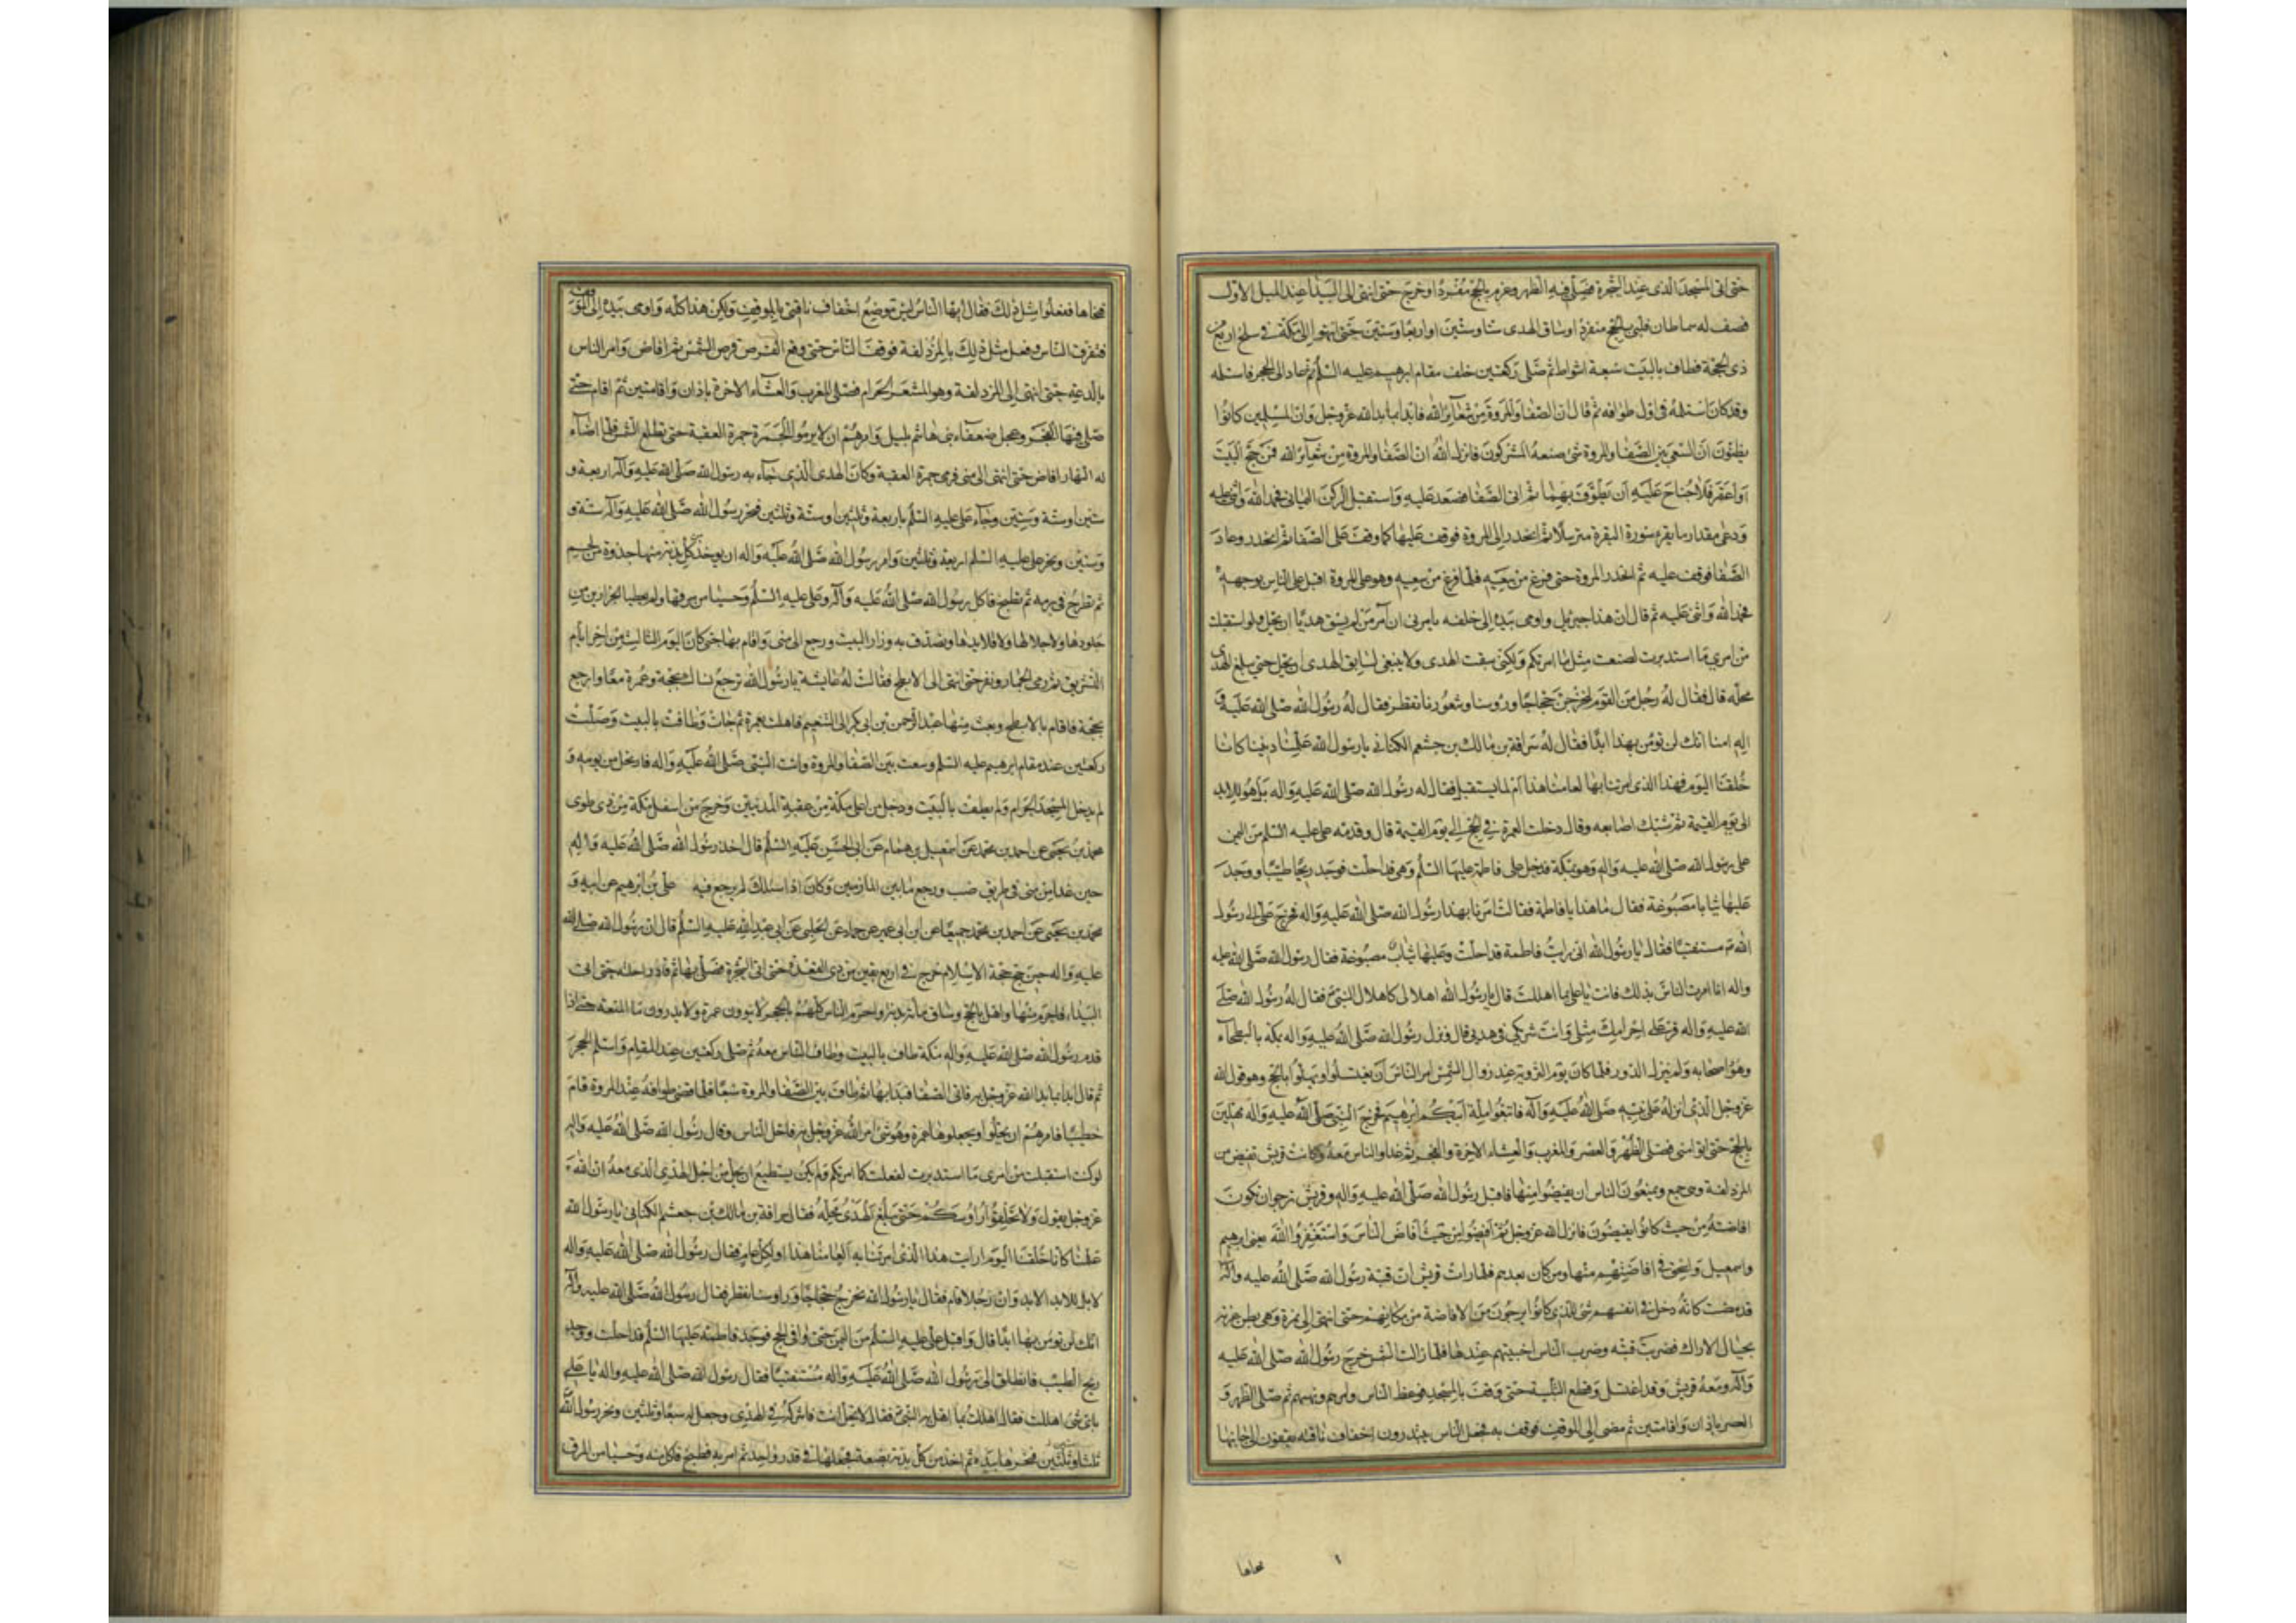 حتى اتى المسجد الذى عند الشجرة فصلى فيه الظهر وعزم بالحج مفردا وخرج حتى انتهى الى البيداء عند الميل الاول
فصف له سماطان فلبى بالحج مفردا وساق الهدى ستا وستين او اربعا وستين حتى انتهى الى مكة فى سلخ اربع من
ذى الحجة فطاف بالبيت سبعة اشواط ثم صلى ركعتين خلف مقام ابرهيم عليه السلم ثم عاد الى الحجر فاستلمه
وقد كان استلمه فى اول طوافه ثم قال ان الصفا والمروة من شعائر الله فابدا بما بدا الله عز وجل وان المسلمين كانوا
يظنون ان السعى بين الصفا والمروة شى صنعه المشركون فانزل الله ان الصفا والمروة من شعائر الله فمن حج البيت
او اعتمر فلا جناح عليه ان يطوف بهما ثم اتى الصفا فصعد عليه واستقبل الركن اليمانى فحمد الله واثنى عليه
ودعى مقدار ما يقرء سورة البقرة مترسلا ثم انحدر الى المروة فوقف عليها كما وقف على الصفا ثم انحدر وعاد
الصفا فوقف عليه ثم انحدر المروة حتى فرغ من سعيه فلما فرغ من سعيه وهو على المروة اقبل على الناس بوجهه
فحمد الله واثنى عليه ثم قال ان هذا جبرئيل واومى بيده الى خلفه يامرنى ان آمر من لم يسق هديا ان يحل ولو استقبلت
من امرى ما استدبرت لصنعت مثل ما امرتكم ولكنى سقت الهدى ولا ينبغى لسايق الهدى ان يحل حتى يبلغ الهدى
محله قال فقال له رجل من القوم لنخرجن حجاجا ورؤسنا وشعورنا تقطر فقال له رسول الله صلى الله عليه و
اله اما انك لن تؤمن بهذا ابدا فقال له سراقة بن مالك بن جشعم الكنانى يا رسول الله علمنا ديننا كانا
خلقنا اليوم فهذا الذى امرتنا بها لعامنا هذا ام لما يستقبل فقال له رسول الله صلى الله عليه واله بل هو للابد
الى يوم القيمة ثم شبك اصابعه وقال دخلت العمرة فى الحج الى يوم القيمة قال وقدم على عليه السلم من اليمن
على رسول الله صلى الله عليه واله وهو بمكة فدخل على فاطمة عليها السلم وهى قد احلت فوجد ريحا طيبا ووجد
عليها ثيابا مصبوغة فقال ما هذا يا فاطمة فقالت امرنا بهذا رسول الله صلى الله عليه واله فخرج على الى رسول
الله ص مستفتيا فقال يا رسول الله انى رايت فاطمة قد احلت وعليها ثياب مصبوغة فقال رسول الله صلى الله عليه
واله انا امرت الناس بذلك فانت يا على بما اهللت قال يا رسول الله اهلالا كاهلال النبى ص فقال له رسول الله صلى
الله عليه واله قر على احرامك مثلى وانت شريكى فى هديى قال ونزل رسول الله صلى الله عليه واله بمكة بالبطحاء
وهو واصحابه ولم ينزل الدور فلما كان يوم التروية عند زوال الشمس امر الناس ان يغتسلوا ويهلوا بالحج وهو قول الله
عز وجل الذى انزله على نبيه صلى الله عليه وآله فاتبعوا ملة ابيكم ابرهيم فخرج النبى صلى الله عليه واله مهلين
بالحج حتى اتوا منى فصلى الظهر والعصر والمغرب والعشاء الاخرة والفجر ثم غدا والناس معه وكانت قريش تفيض من
المزدلفة وهى جمع ويمنعون الناس ان يفيضوا منها فاقبل رسول الله صلى الله عليه واله وقريش ترجو ان تكون
افاضته من حيث كانوا يفيضون فانزل الله عز وجل ثم افيضوا من حيث افاض الناس واستغفروا الله يعنى ابرهيم
واسمعيل واسحق فى افاضتهم منها ومن كان بعدهم فلما رات قريش ان قبة رسول الله صلى الله عليه واله
قد مضت كانه دخل فى انفسهم شى للذى كانوا يرجون من الافاضة من مكانهم حتى انتهى الى نمرة وهى بطن عرنه
بحيال الاراك فضربت قبته وضرب الناس اخبيتهم عندها فلما زالت الشمس خرج رسول الله صلى الله عليه
وآله ومعه قريش وقد اغتسل وقطع التلبية حتى وقف بالمسجد فوعظ الناس وامرهم ونهيهم ثم صلى الظهر و
العصر باذان واقامتين ثم مضى الى الموقف فوقف به فجعل الناس يبتدرون اخفاف ناقته يقفون الى جانبها
فنحاها
فنحاها ففعلوا مثل ذلك فقال ايها الناس ليس موضع اخفاف ناقتى بالموقف ولكن هذا كله واومى بيده الى الموقف
فتفرق الناس وفعل مثل ذلك بالمزدلفة فوقف الناس حتى وقع القرص قرص الشمس ثم افاض وامر الناس
بالدعة حتى انتهى الى المزدلفة وهو المشعر الحرام فصلى المغرب والعشاء الاخرة باذان واقامتين ثم اقام حتى
صلى فيها الفجر وعجل ضعفاء بنى هاشم بليل وامرهم ان لا يرموا الجمرة جمرة العقبة حتى تطلع الشمس فلما اضاء
له النهار افاض حتى انتهى الى منى فرمى جمرة العقبة وكان الهدى الذى جاء به رسول الله صلى الله عليه وآله اربعة و
ستين او ستة وستين وجاء على عليه السلم باربعة وثلثين او ستة وثلثين فنحر رسول الله صلى الله عليه وآله ستة و
وستين ونحر على عليه السلم اربعة وثلثين وامر رسول الله صلى الله عليه واله ان يوخذ من كل بدنة منها جذوة من لحم
ثم تطرح فى برمة ثم تطبخ فاكل رسول الله صلى الله عليه وآله وعلى عليه السلم وحسيا من مرقها ولم يعطيا الجزارين
جلودها ولا جلالها ولا قلايدها وتصدق به وزار البيت ورجع الى منى واقام بها حتى كان اليوم الثالث من اخر ايام
التشريق ثم رمى الجمار ونفر حتى انتهى الى الابطح فقالت له عايشة يا رسول الله ترجع نساؤك بحجة وعمرة معا وارجع
بحجة فاقام بالابطح وبعث معها عبد الرحمن بن ابى بكر الى التنعيم فاهلت بعمرة ثم جائت وطافت بالبيت وصلت
ركعتين عند مقام ابرهيم عليه السلم وسعت بين الصفا والمروة واتت النبى صلى الله عليه واله فارتحل من يومه و
لم يدخل المسجد الحرام ولم يطف بالبيت ودخل من اعلى مكة من عقبة المدنيين وخرج من اسفل مكة من ذى طوى
محمد بن يحيى عن احمد بن محمد عن اسمعيل بن همام عن ابى الحسن عليه السلم قال اخذ رسول الله صلى الله عليه واله
حين غدا من منى فى طريق ضب ورجع ما بين المازمين وكان اذا سلك لم يرجع فيه على بن ابرهيم عن ابيه و
محمد بن يحيى عن احمد بن محمد جميعا عن ابن ابى عمير عن حماد عن الحلبى عن ابى عبد الله عليه السلم قال ان رسول الله صلى الله
عليه واله حين حج حجة الاسلام خرج فى اربع بقين من ذى القعدة حتى اتى الشجرة فصلى بها ثم قاد راحلته حتى اتى
البيداء فاحرم منها واهل بالحج وساق مائة بدنة واحرم الناس كلهم بالحج لا ينوون عمرة ولا يدرون ما المتعة حتى اذا
قدم رسول الله صلى الله عليه واله مكة طاف بالبيت وطاف الناس معه ثم صلى ركعتين عند المقام واستلم الحجر
ثم قال ابدا بما بدا الله عز وجل به فاتى الصفا فبدا بها ثم طاف بين الصفا والمروة سبعا فلما قضى طوافه عند المروة قام
خطيبا فامرهم ان يحلوا ويجعلوها عمرة وهو شى امر الله عز وجل به فاحل الناس وقال رسول الله صلى الله عليه واله
لو كنت استقبلت من امرى ما استدبرت لفعلت كما امرتكم ولم يكن يستطيع ان يحل من اجل الهدى الذى معه ان الله
عز وجل يقول ولا تحلقوا رؤسكم حتى يبلغ الهدى محله فقال سراقة بن مالك بن جعشم الكنانى يا رسول الله
علمنا كانا خلقنا اليوم ارايت هذا الذى امرتنا به العامنا هذا او لكل عام فقال رسول الله صلى الله عليه واله
لا بل للابد الابد وان رجلا قام فقال يا رسول الله نخرج حجاجا وراوسنا تقطر فقال رسول الله صلى الله عليه واله
انك لن تومن بها ابدا قال واقبل على عليه السلم من اليمن حتى وافى الحج فوجد فاطمة عليها السلم قد احلت ووجد
ريح الطيب فانطلق الى رسول الله صلى الله عليه واله مستفتيا فقال رسول الله صلى الله عليه واله يا على
باى شى اهللت فقال اهللت بما اهل به النبى ص فقال لا تحل انت فاشركه فى الهدى وجعل له سبعا وثلثين ونحر رسول الله
ثلثا وستين فنحرها بيده ثم اخذ من كل بدنة بضعة فجعلها فى قدر واحد ثم امر به فطبخ فاكل منه وحسيا من المرق